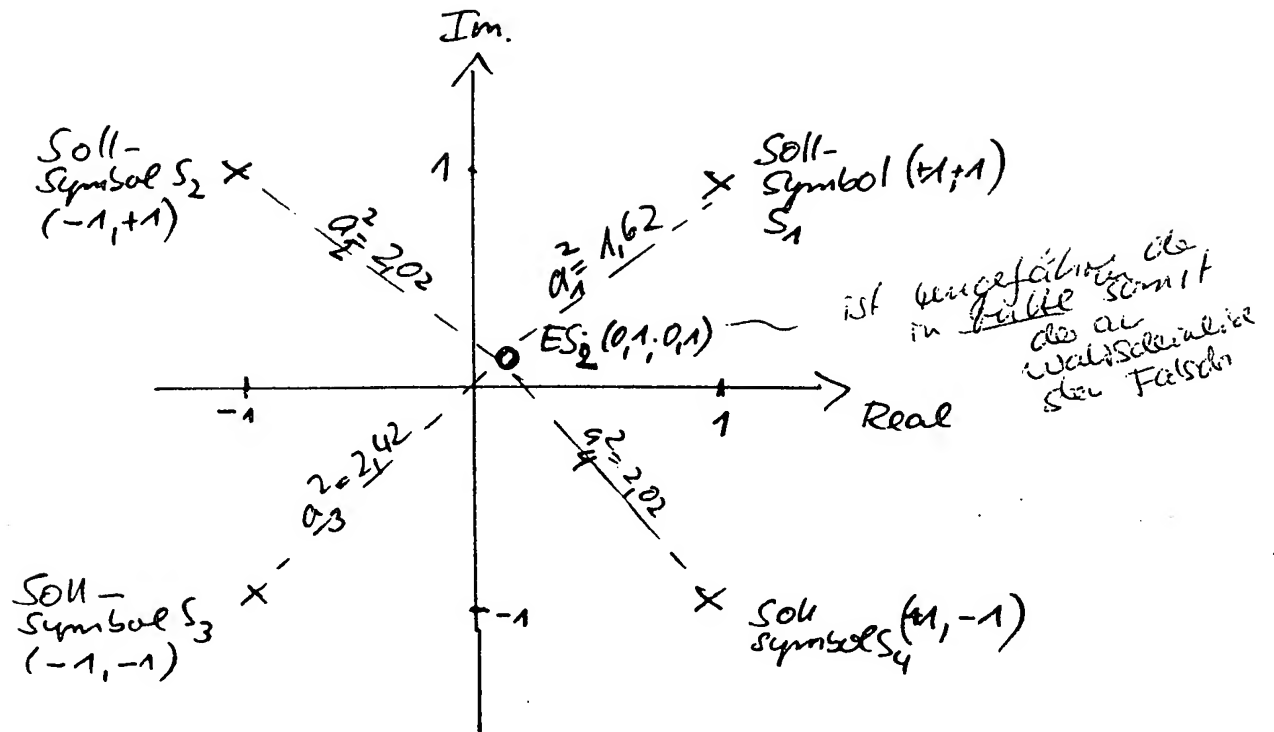 Im.
Soll-
Symbol S2
(-1,+1)
1
Soll-
Symbol (+1,+1)
S1
a2² = 2,02
a1² = 1,62
ES2 (0,1; 0,1)
ist ungefähr in de
in Mitte somit
de am
Wahrscheinlich
sten Falsch
-1
1
Real
a3² = 2,42
a² = 2,02
Soll-
Symbol S3
(-1,-1)
-1
Soll
Symbol S4 (+1,-1)